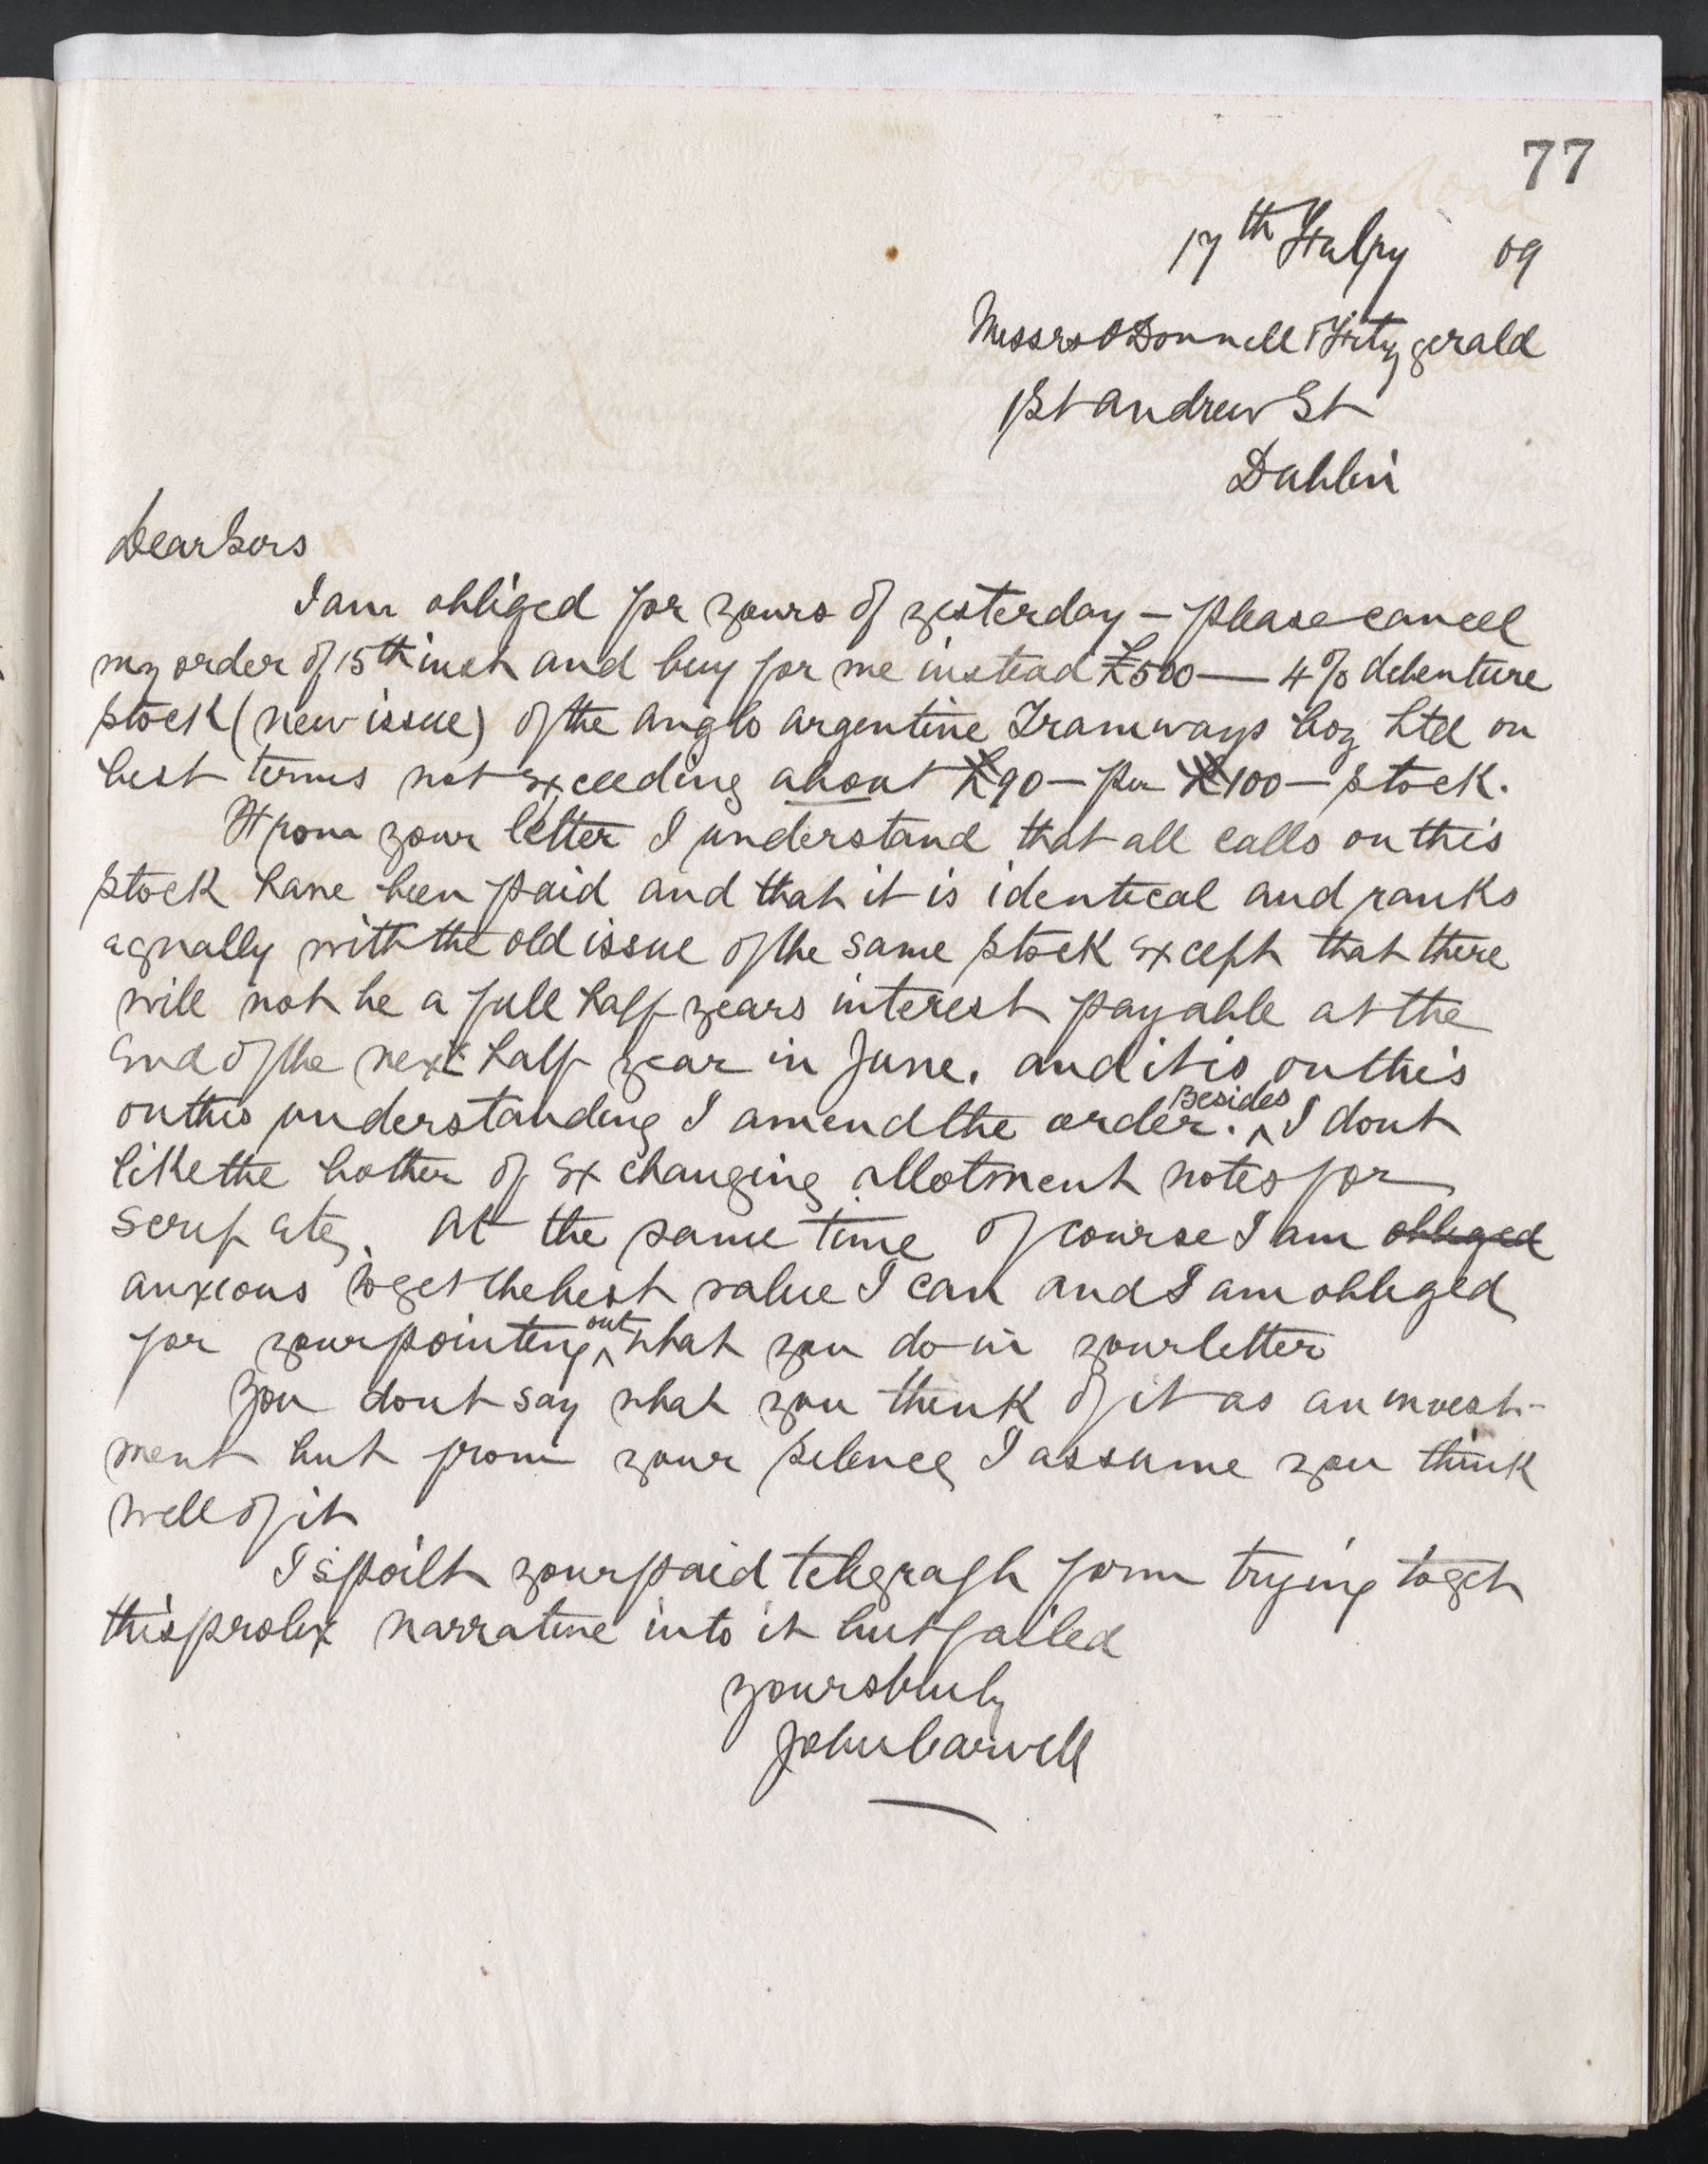 77
17th Feby 09
Messrs O'Donnell & Fitzgerald
1 St Andrew St
Dublin
Dear Sirs
I am obliged for yours of yesterday – please cancel
my order of 15th inst and buy for me instead £500 — 4% debenture
stock (new issue) of the Anglo Argentine Tramways Coy Ltd on
best terms not exceeding about £90 – per £100 – stock.
From your letter I understand that all calls on this
stock have been paid and that it is identical and ranks
equally with the old issue of the same stock except that there
will not be a full half years interest payable at the
End of the next half year in June. and it is on this
on this understanding I amend the order. Besides I dont
like the bother of Exchanging allotment notes for
scrip etc. At the same time of course I am obliged
anxious to get the best value I can and I am obliged
for your pointing out what you do in your letter
You dont say what you think of it as an invest-
ment but from your silence I assume you think
well of it
I spoilt your paid telegraph form trying to get
this prolix narrative into it but failed
Yours truly
John Carvell